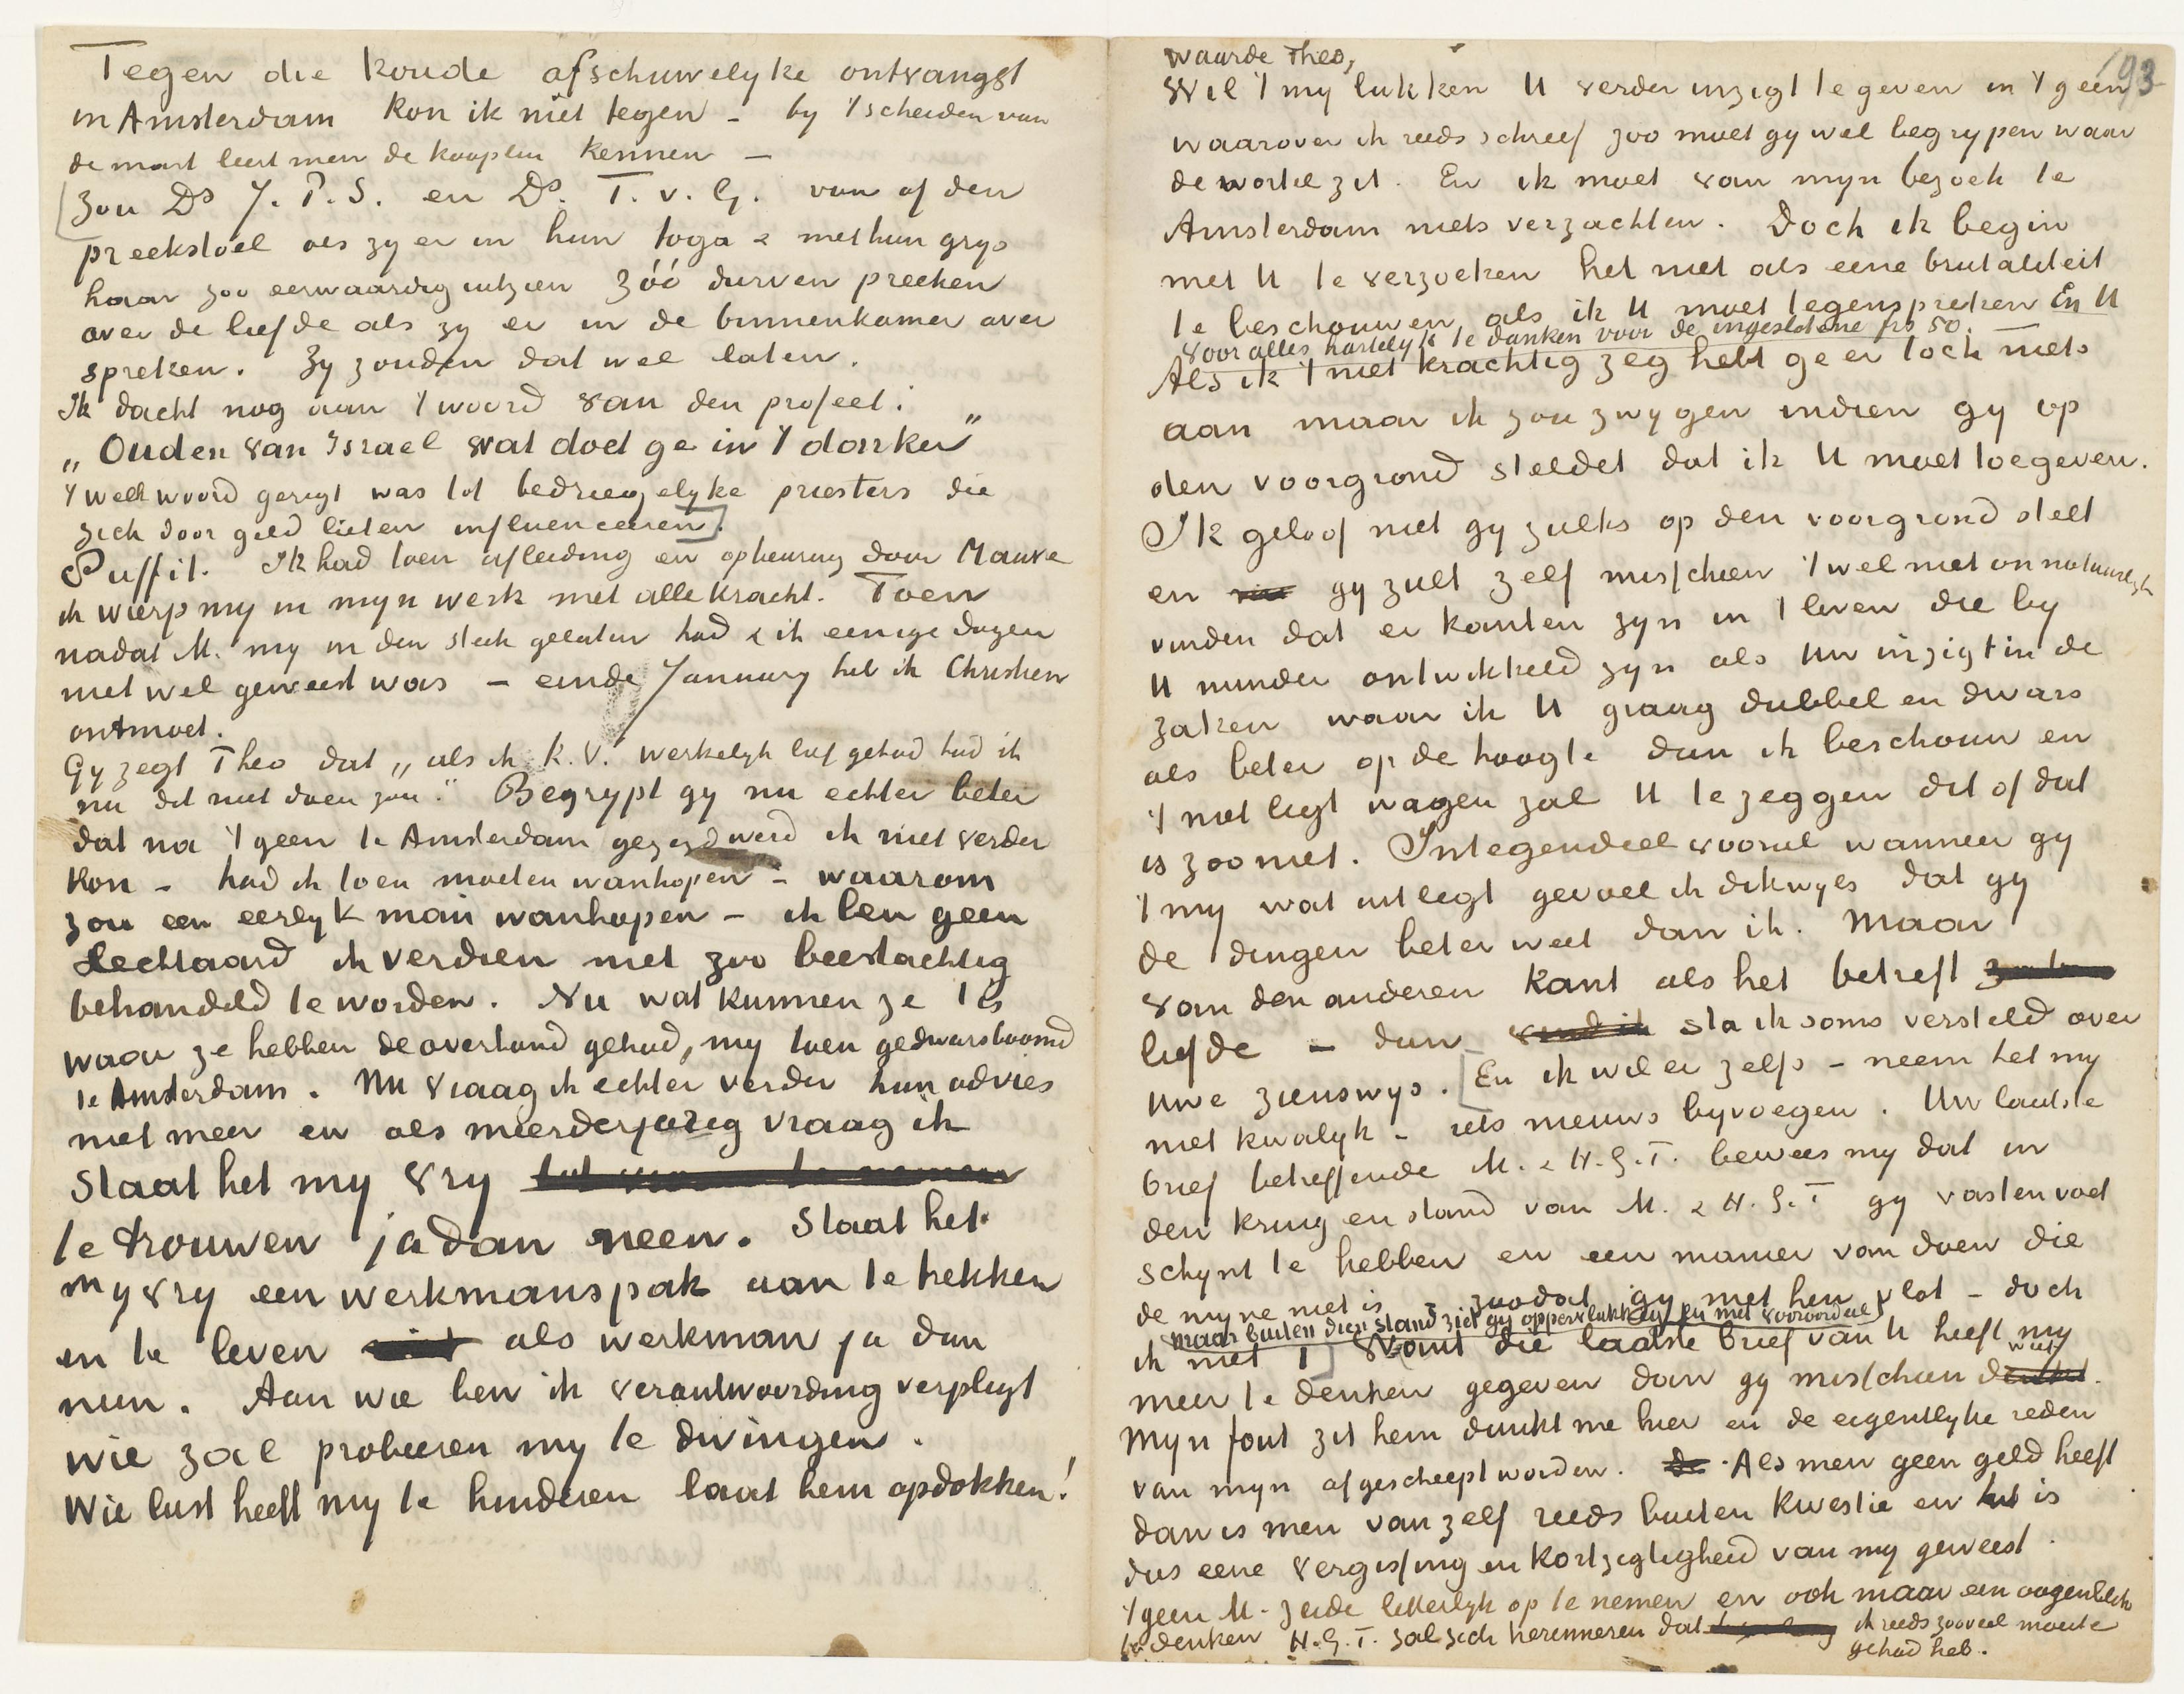 Tegen die koude afschuwelyke ontvangst
in Amsterdam kon ik niet tegen – by 't scheiden van
de mart leert men de kooplui kennen –
[Zou Ds J. P. S. en Ds. T. v. G. van af den
preekstoel als zy er in hun toga & met hun grys
haar zoo eerwaardig uitzien zóó durven preeken
over de liefde als zy er in de binnenkamer over
spreken. Zy zouden dat wel laten.
Ik dacht nog aan 't woord van den profeet:
„Ouden van Israel wat doet ge in 't donker"
't welk woord gerigt was tot bedriegelyke priesters die
zich door geld lieten influenceeren].
Suffit. Ik had toen afleiding en opbeuring door Mauve
ik wierp my in myn werk met alle kracht. Toen
nadat M. my in den steek gelaten had & ik eenige dagen
niet wel geweest was – einde January heb ik Christien
ontmoet.
Gy zegt Theo dat „als ik K. V. werkelyk lief gehad had ik
nu dit niet doen zou." Begrypt gy nu echter beter
dat na 't geen te Amsterdam gezegd werd ik niet verder
kon – had ik toen moeten wanhopen – waarom
zou een eerlyk man wanhopen – ik ben geen
slechtaard ik verdien niet zoo beestachtig
behandeld te worden. Nu wat kunnen ze 't is
waar ze hebben de overhand gehad, my toen gedwarsboomd
te Amsterdam. Nu vraag ik echter verder hun advies
niet meer en als meerderjarig vraag ik
Staat het my vry
te trouwen ja dan neen. Staat het
my vry een werkmanspak aan te trekken
en te leven als werkman ja dan
neen. Aan wie ben ik verantwoording verpligt
wie zal probeeren my te dwingen.
Wie lust heeft my te hinderen laat hem opdokken!
93
Waarde Theo,
Wil 't my lukken U verder inzigt te geven in 't geen
waarover ik reeds schreef zoo moet gy wel begrypen waar
de wortel zit. En ik moet van myn bezoek te
Amsterdam niets verzachten. Doch ik begin
met U te verzoeken het niet als eene brutaliteit
te beschouwen als ik U moet tegenspreken En U
vooralles hartelyk te danken voor de ingeslotene frs 50.
Als ik 't niet krachtig zeg hebt ge er toch niets
aan maar ik zou zwygen indien gy op
den voorgrond steldet dat ik U moet toegeven.
Ik geloof niet gy zulks op den voorgrond stelt
en gy zult zelf misschien 't wel niet onnatuurlyk
vinden dat er kanten zyn in 't leven die by
U minder ontwikkeld zyn als Uw inzigt in de
zaken waar ik U graag dubbel en dwars
als beter op de hoogte dan ik beschouw en
't niet ligt wagen zal U te zeggen dit of dat
is zoo niet. Integendeel vooral wanneer gy
't my wat uitlegt gevoel ik dikwyls dat gy
de dingen beter weet dan ik. Maar
van den anderen kant als het betreft
liefde – dan sta ik soms versteld over
Uwe zienswys. [En ik wil er zelfs – neem het my
niet kwalyk – iets nieuws byvoegen. Uw laatste
brief betreffende M. & H. G. T. bewees my dat in
den kring en stand van M. & H. G. T gy vasten voet
schynt te hebben en een manier van doen die
de myne niet is – zoodat gy met hen vlot – doch
maar buiten dien stand ziet gy oppervlakkig en met vooroordeel
ik niet]. Want die laatste brief van U heeft my
meer te denken gegeven dan gy misschien weet.
Myn fout zit hem dunkt me hier en de eigentlyke reden
van myn afgescheept worden. Als men geen geld heeft
dan is men van zelf reeds buiten kwestie en het is
dus eene vergissing en kortzigtigheid van my geweest
't geen M. zeide letterlyk op te nemen en ook maar een oogenblik
te denken H. G. T. zal zich herinneren dat ik reeds zooveel moeite
gehad heb.